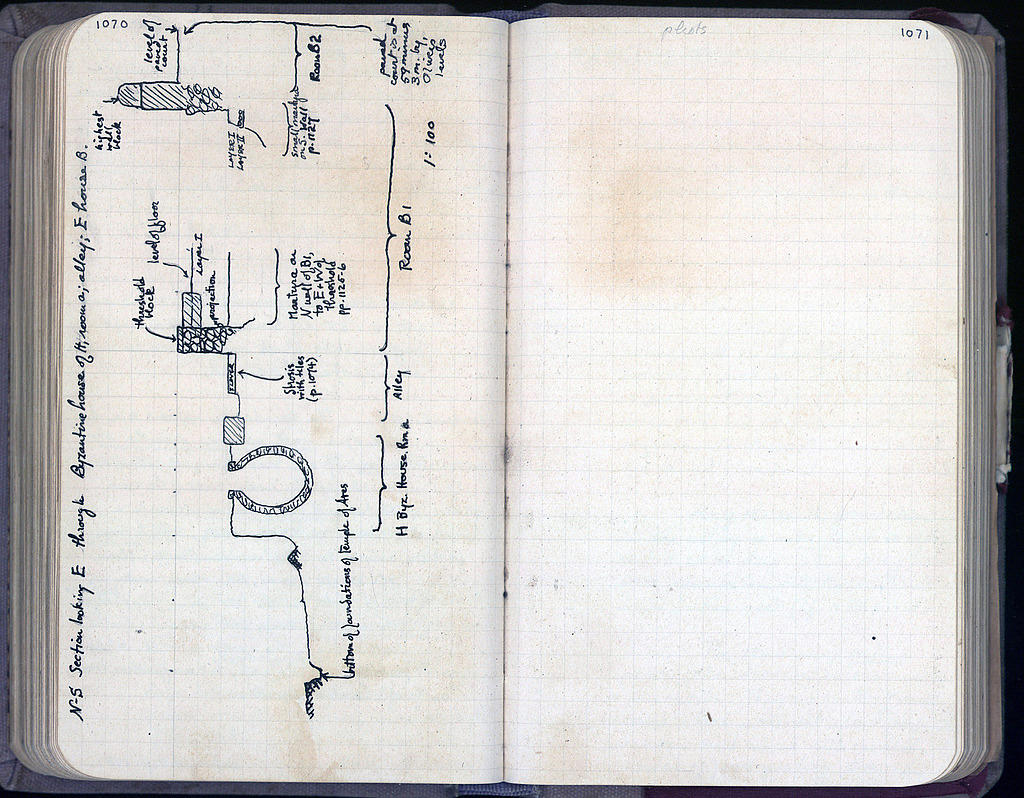 1070
N-S Section looking E through Byzantine house of H, room a; alley; E house B.
highest
wall
block
level of
paved
court
LAYER I
LAYER II
small martyra
on S. Wall
p. 1127
Room B2
paved
court is at
59 minus
3 m. by
O/wep
levels
1:100
threshold
block
level of floor
Layer I
projection
Martyra on
N wall of B1,
to E + W of
threshold
pp. 1125-6
Room B1
Strosis
with tiles
(p. 1074)
Alley
H Byz. House, Rm a
bottom of foundations of temple of Ares
plots
1071